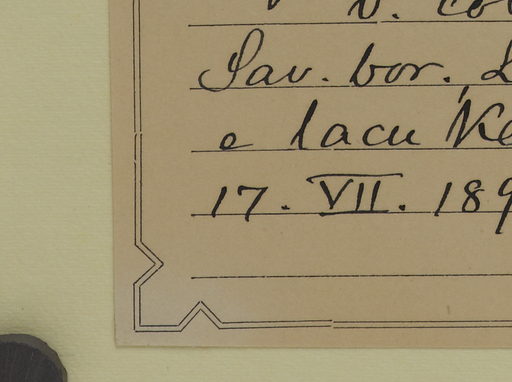 v. co
Sav. bor.
e lacu Ke
17. VII. 189